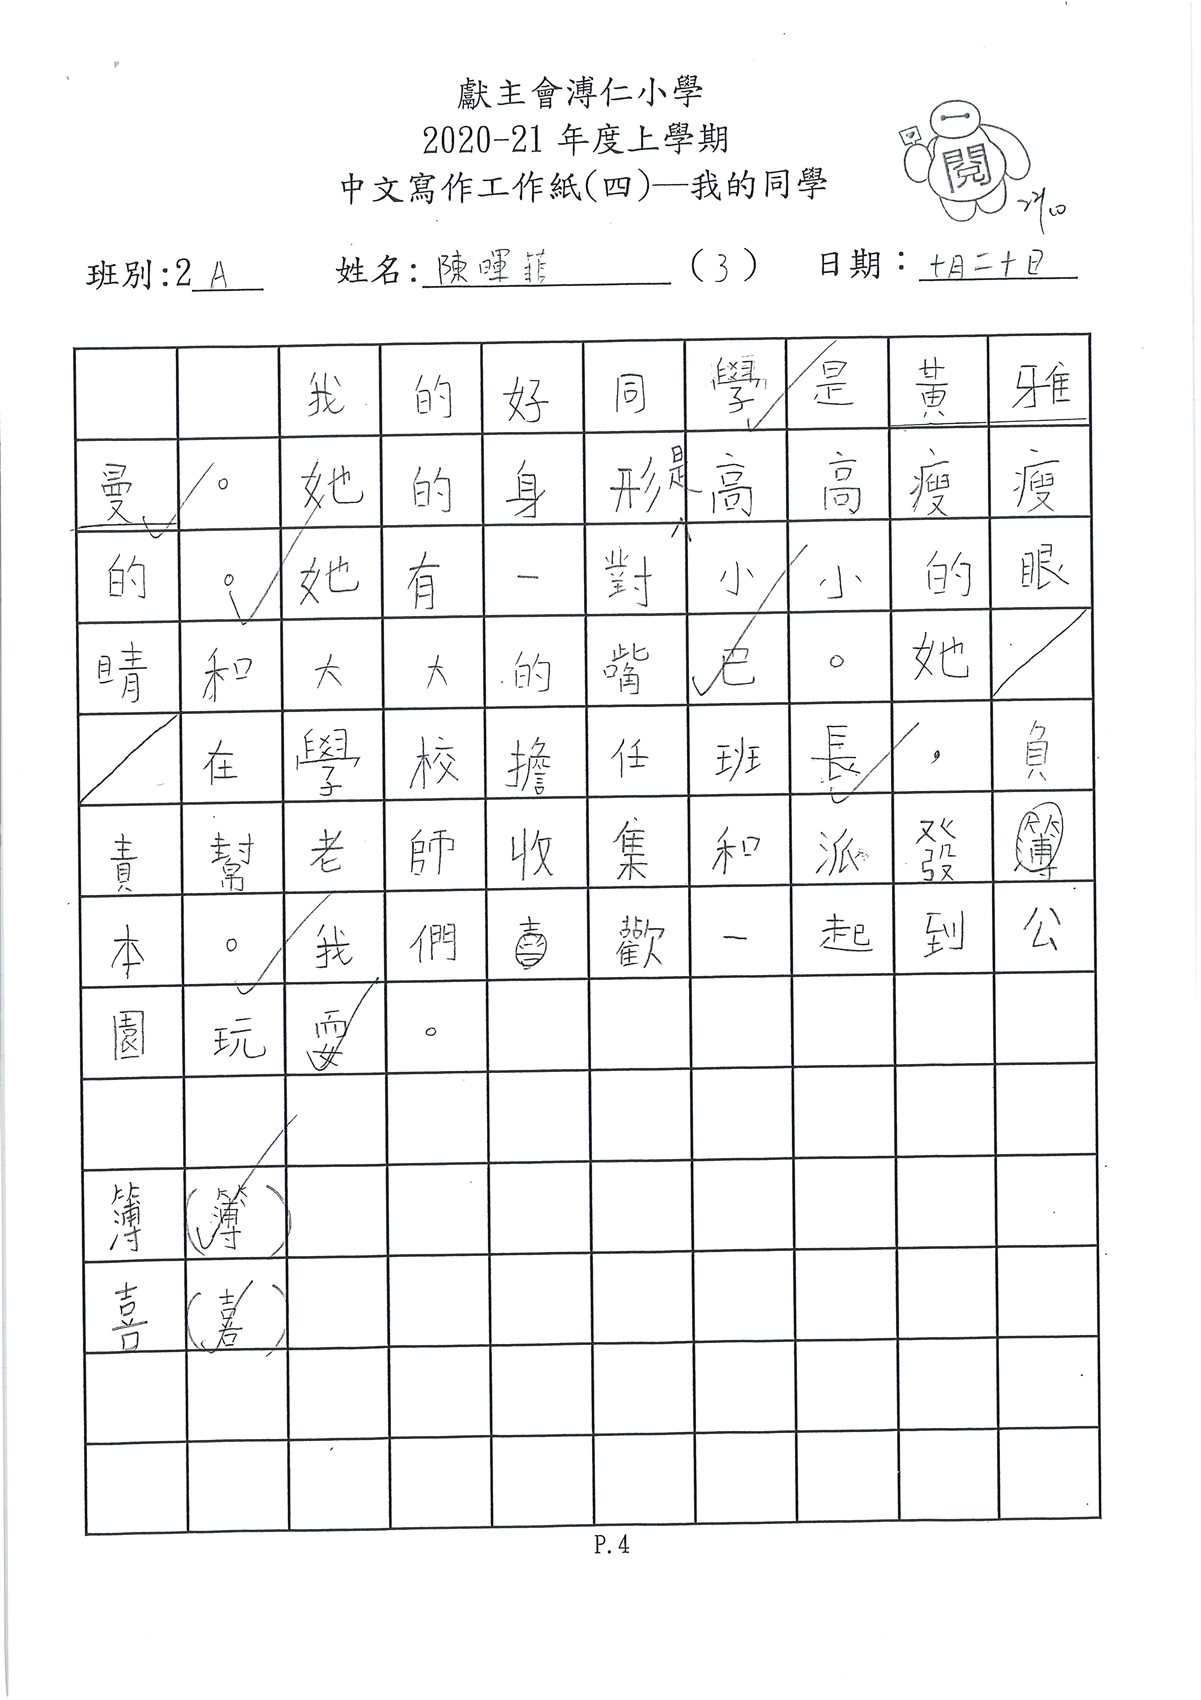 獻主會溥仁小學
2020-21 年度上學期
中文寫作工作紙(四)—我的同學
閱
27/10
班別:2 A 姓名: 陳暉菲 (3) 日期: 十月二十日
我的好同學是黃雅
曼。她的身形是高高瘦瘦
的。她有一對小小的眼
睛和大大的嘴巴。她
在學校擔任班長,負
責幫老師收集和派發簿
本。我們喜歡一起到公
園玩耍。
簿(簿)
喜(喜)
P.4